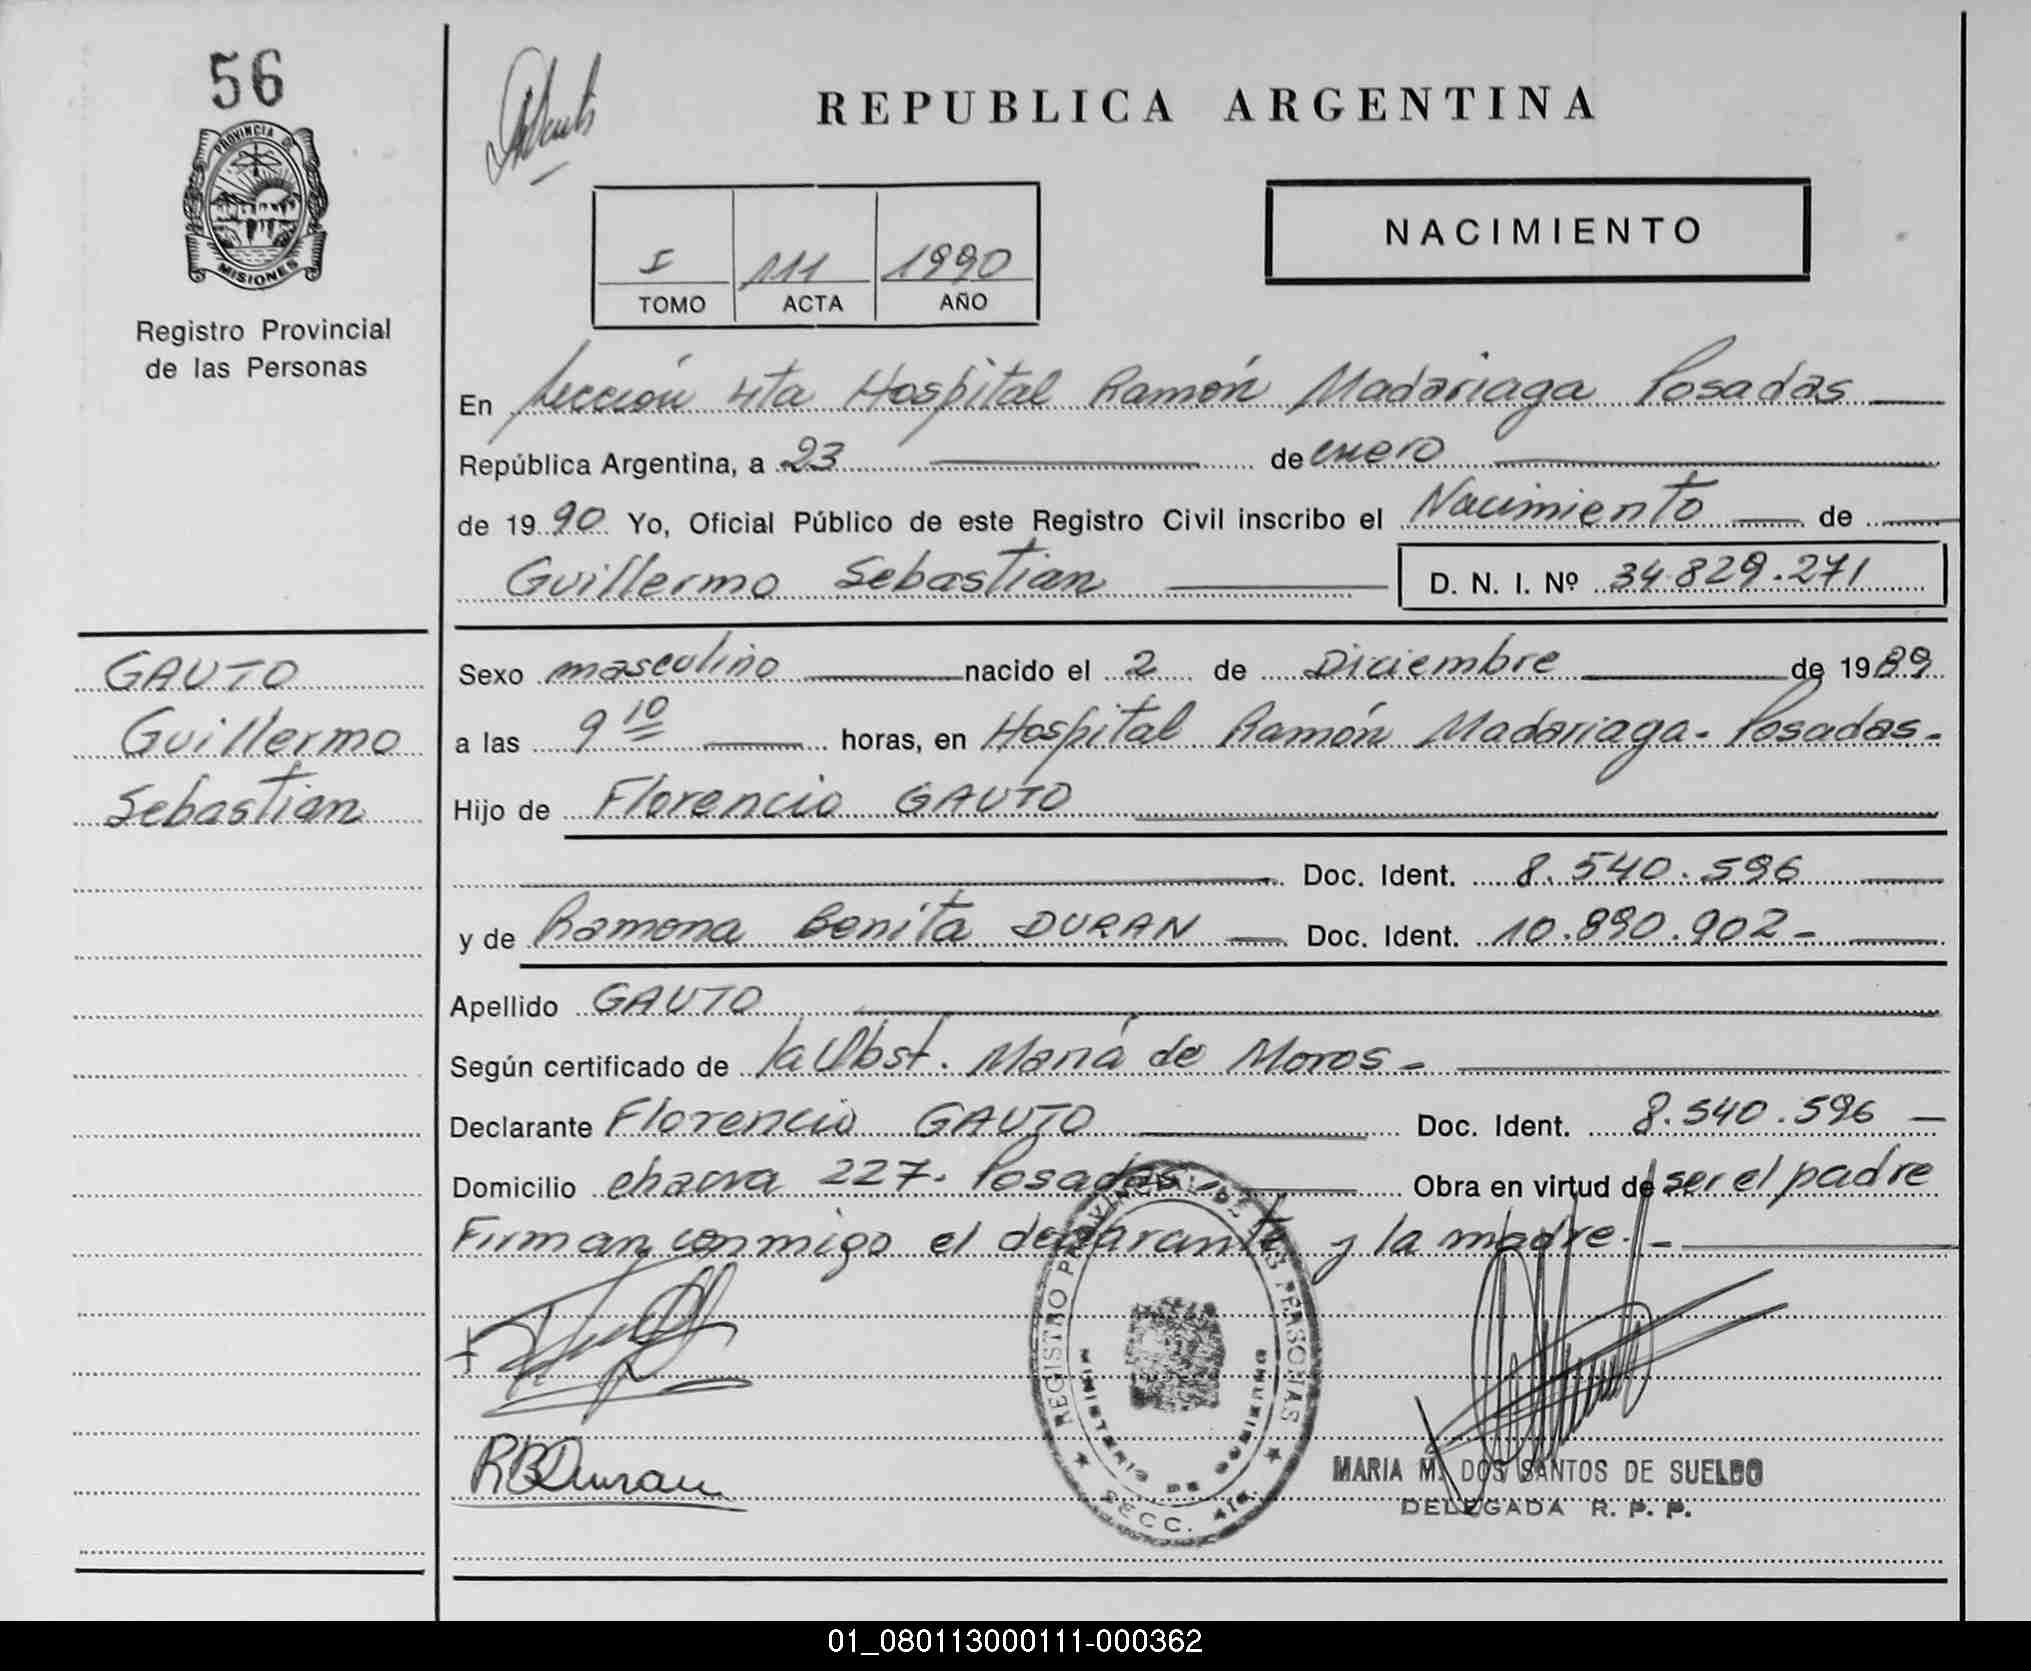 56
PROVINCIA DE
MISIONES
Registro Provincial
de las Personas
REPUBLICA ARGENTINA
NACIMIENTO
I 111 1990
TOMO ACTA AÑO
En Sección 4ta Hospital Ramón Madariaga Posadas
República Argentina, a 23 de enero
de 1990 Yo, Oficial Público de este Registro Civil inscribo el Nacimiento de
Guillermo Sebastian D. N. I. Nº 34.829.271
GAUTO
Guillermo
Sebastian
Sexo masculino nacido el 2 de Diciembre de 1989
a las 9 10 horas, en Hospital Ramón Madariaga - Posadas -
Hijo de Florencio GAUTO
Doc. Ident. 8.540.596
y de Ramona Benita DURAN Doc. Ident. 10.890.902 -
Apellido GAUTO
Según certificado de la Obst. María de Moros -
Declarante Florencio GAUTO Doc. Ident. 8.540.596
Domicilio chacra 227 - Posadas - Obra en virtud de ser el padre
Firman conmigo el declarante y la madre. -
REGISTRO PROVINCIAL DE LAS PERSONAS
MINISTERIO DE GOBIERNO
SECC. 4ta.
RBDuran
MARIA M. DOS SANTOS DE SUELDO
DELEGADA R. P. P.
01_080113000111-000362